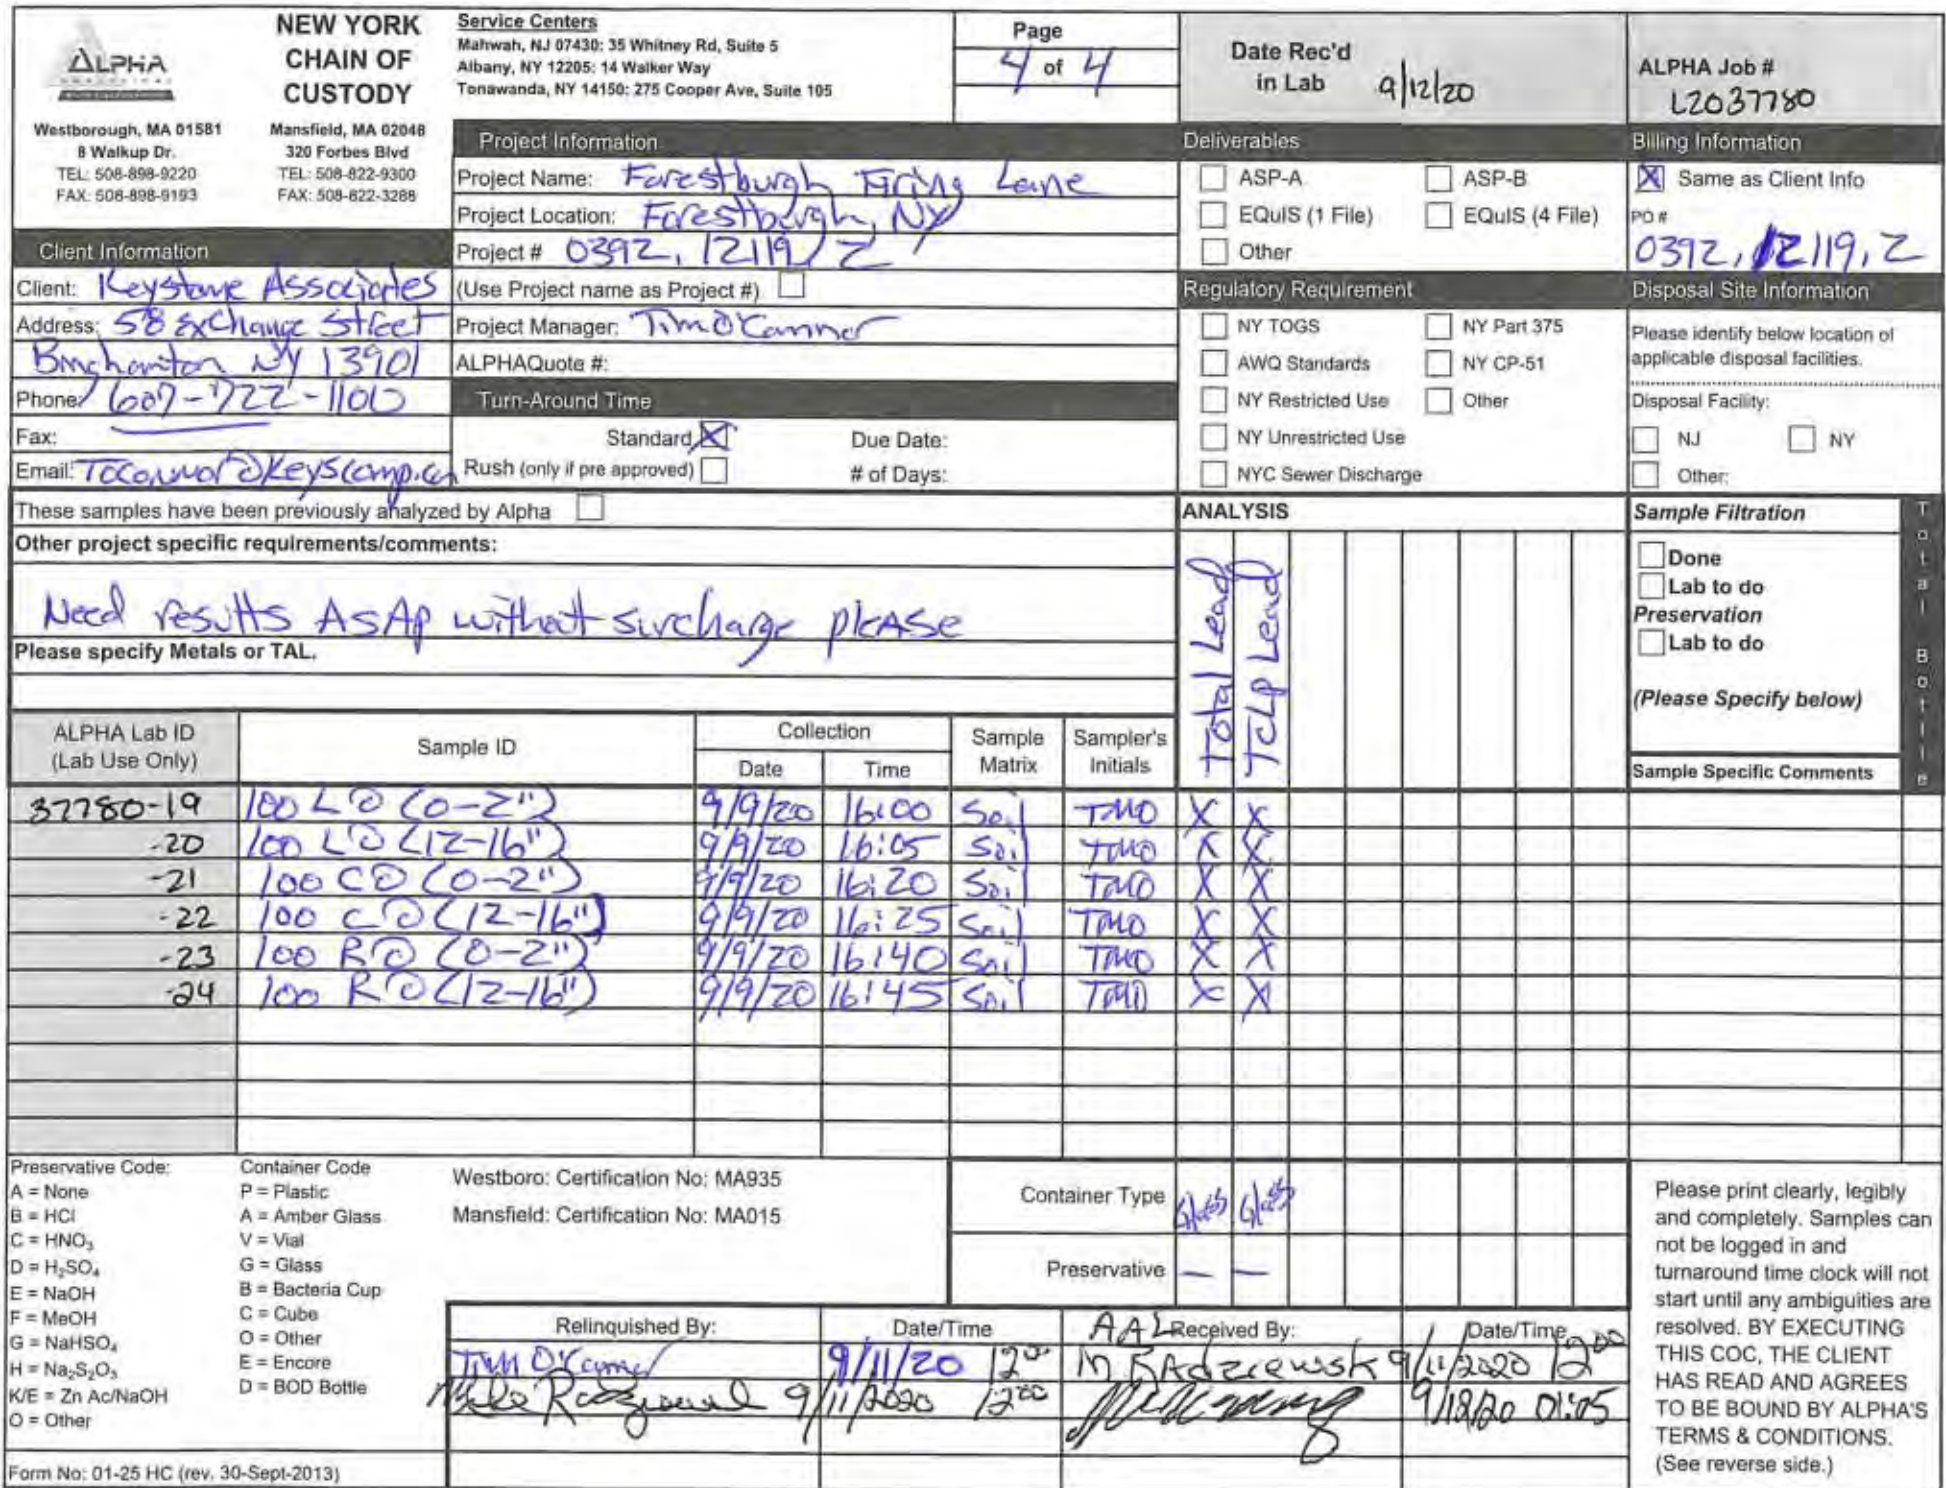 ALPHA
NEW YORK
CHAIN OF
CUSTODY
Westborough, MA 01581
8 Walkup Dr.
TEL: 508-898-9220
FAX: 508-898-9193
Mansfield, MA 02048
320 Forbes Blvd
TEL: 508-822-9300
FAX: 508-822-3288
Service Centers
Mahwah, NJ 07430: 35 Whitney Rd, Suite 5
Albany, NY 12205: 14 Walker Way
Tonawanda, NY 14150: 275 Cooper Ave, Suite 105
Page
4 of 4
Date Rec'd
in Lab 9/12/20
ALPHA Job #
L2037780
Client Information
Client: Keystone Associates
Address: 58 Exchange Street
Binghamton NY 13901
Phone: 607-722-1100
Fax:
Email: Toconnor@Keyscomp.com
Project Information
Project Name: Forestburgh Firing Lane
Project Location: Forestburgh, NY
Project # 0392.12119.2
(Use Project name as Project #)
Project Manager: Tim O'Connor
ALPHAQuote #:
Turn-Around Time
Standard X Due Date:
Rush (only if pre approved) # of Days:
Deliverables
ASP-A ASP-B
EQuIS (1 File) EQuIS (4 File)
Other
Regulatory Requirement
NY TOGS NY Part 375
AWQ Standards NY CP-51
NY Restricted Use Other
NY Unrestricted Use
NYC Sewer Discharge
Billing Information
X Same as Client Info
PO #
0392.12119.2
Disposal Site Information
Please identify below location of
applicable disposal facilities.
Disposal Facility:
NJ NY
Other:
These samples have been previously analyzed by Alpha
Other project specific requirements/comments:
Need results ASAP without surcharge please
Please specify Metals or TAL.
ANALYSIS
Total Lead
TCLP Lead
Sample Filtration
Done
Lab to do
Preservation
Lab to do
(Please Specify below)
Total Bottle
Sample Specific Comments
ALPHA Lab ID
(Lab Use Only)
Sample ID
Collection
Date Time
Sample
Matrix
Sampler's
Initials
37780-19 100 LO (0-2") 9/9/20 16:00 Soil TMO X X
-20 100 LO (12-16") 9/9/20 16:05 Soil TMO X X
-21 100 CO (0-2") 9/9/20 16:20 Soil TMO X X
-22 100 CO (12-16") 9/9/20 16:25 Soil TMO X X
-23 100 RO (0-2") 9/9/20 16:40 Soil TMO X X
-24 100 RO (12-16") 9/9/20 16:45 Soil TMO X X
Preservative Code:
A = None
B = HCl
C = HNO₃
D = H₂SO₄
E = NaOH
F = MeOH
G = NaHSO₄
H = Na₂S₂O₃
K/E = Zn Ac/NaOH
O = Other
Container Code
P = Plastic
A = Amber Glass
V = Vial
G = Glass
B = Bacteria Cup
C = Cube
O = Other
E = Encore
D = BOD Bottle
Westboro: Certification No: MA935
Mansfield: Certification No: MA015
Container Type Glass Glass
Preservative — —
Relinquished By: Date/Time AAL Received By: Date/Time
Tim O'Connor 9/11/20 12:00 M RAdziewsk 9/11/2020 12:00
9/11/2020 12:00 9/12/20 01:05
Please print clearly, legibly
and completely. Samples can
not be logged in and
turnaround time clock will not
start until any ambiguities are
resolved. BY EXECUTING
THIS COC, THE CLIENT
HAS READ AND AGREES
TO BE BOUND BY ALPHA'S
TERMS & CONDITIONS.
(See reverse side.)
Form No: 01-25 HC (rev. 30-Sept-2013)